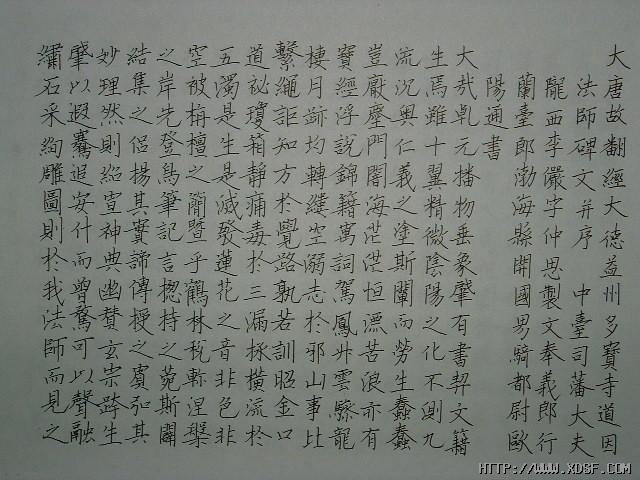 大唐故翻經大德益州多寶寺道因
法師碑文并序 中臺司藩大夫
隴西李儼字仲思製文奉義郎行
蘭臺郎渤海縣開國男騎都尉歐
陽通書
大哉乾元播物垂象肇有書契文籍
生焉雖十翼精微陰陽之化不測九
流沉奥仁義之塗斯闡而勞生蠢蠢
豈厭塵門闇海茫茫恒漂苦浪亦有
寶經浮說錦籍寓詞駕鳳升雲驂龍
棲月跡均轉縫空溺志於邪山事比
繫繩詎知方於覺路孰若訓昭金口
道祕瓊箱靜痡毒於三漏拯橫流於
五濁是生是滅發蓮花之音非色非
空被栴檀之簡暨乎鶴林稅軫涅槃
之岸先登鳥筆記言揔持之菀斯闢
結集之侶揚其實諦傳授之賓弘其
妙理然則紹宣神典幽贊玄宗跨生
肇以遐騫追安什而曾騖可以聲融
繡石采絢雕圖則於我法師而見之
HTTP://WWW.XDSF.COM